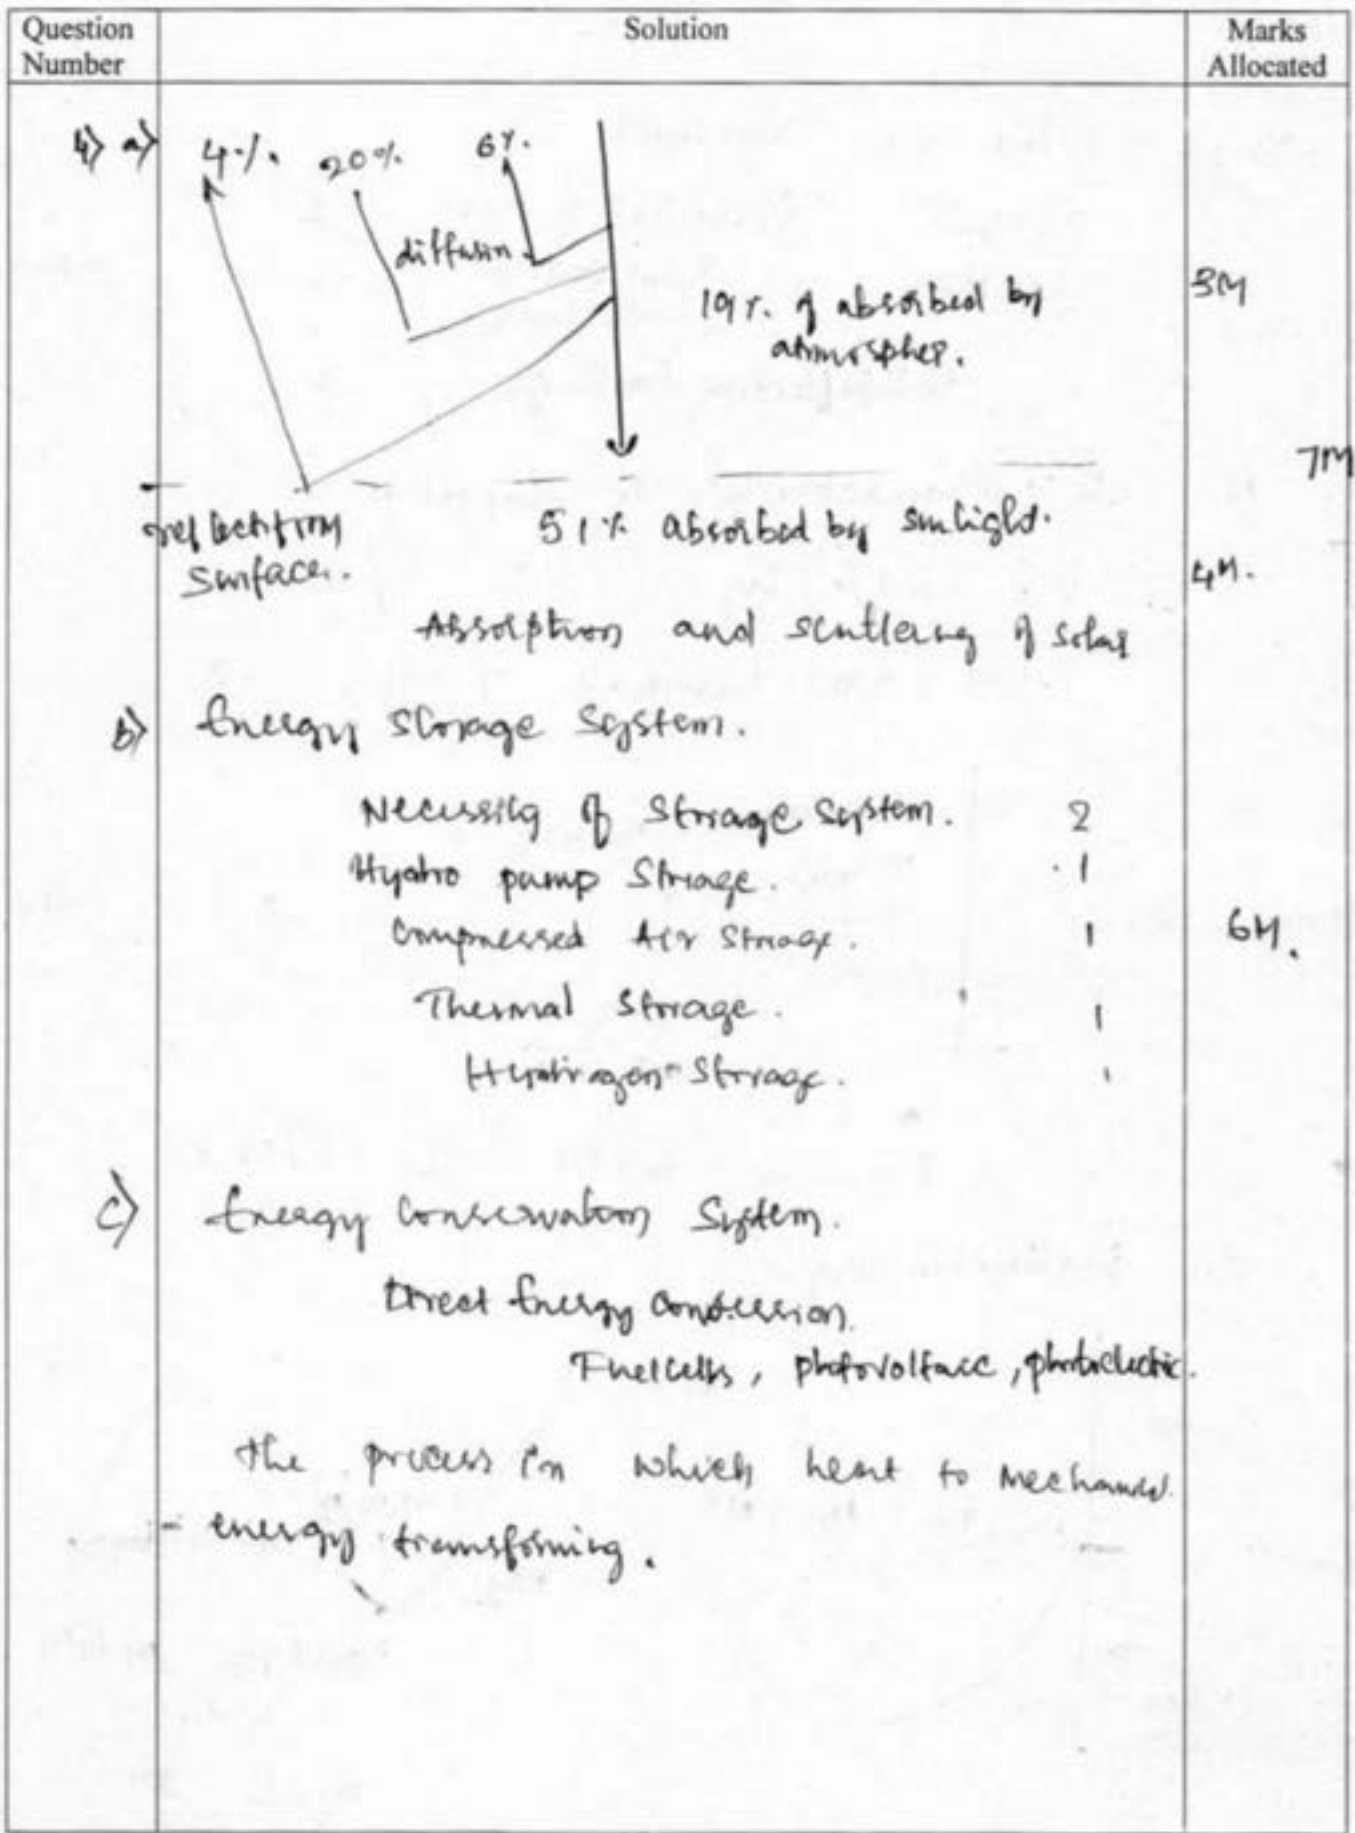 Question Number
Solution
Marks Allocated
4) a)
4%. 20% 6%.
diffusion
19%. of absorbed by
atmospher.
3M
7M
reflection
surface.
51% absorbed by sunlight.
4M.
Absorption and scattering of solar
b) Energy storage System.
Necessity of Storage System. 2
Hydro pump Storage. 1
Compressed Air Storage. 1
6M.
Thermal Storage. 1
Hydrogen Storage. 1
c) Energy Conservation System.
Direct Energy Conversion.
Fuel cells, photovoltaic, photoelectric.
the process in which heat to mechanical
energy transforming.